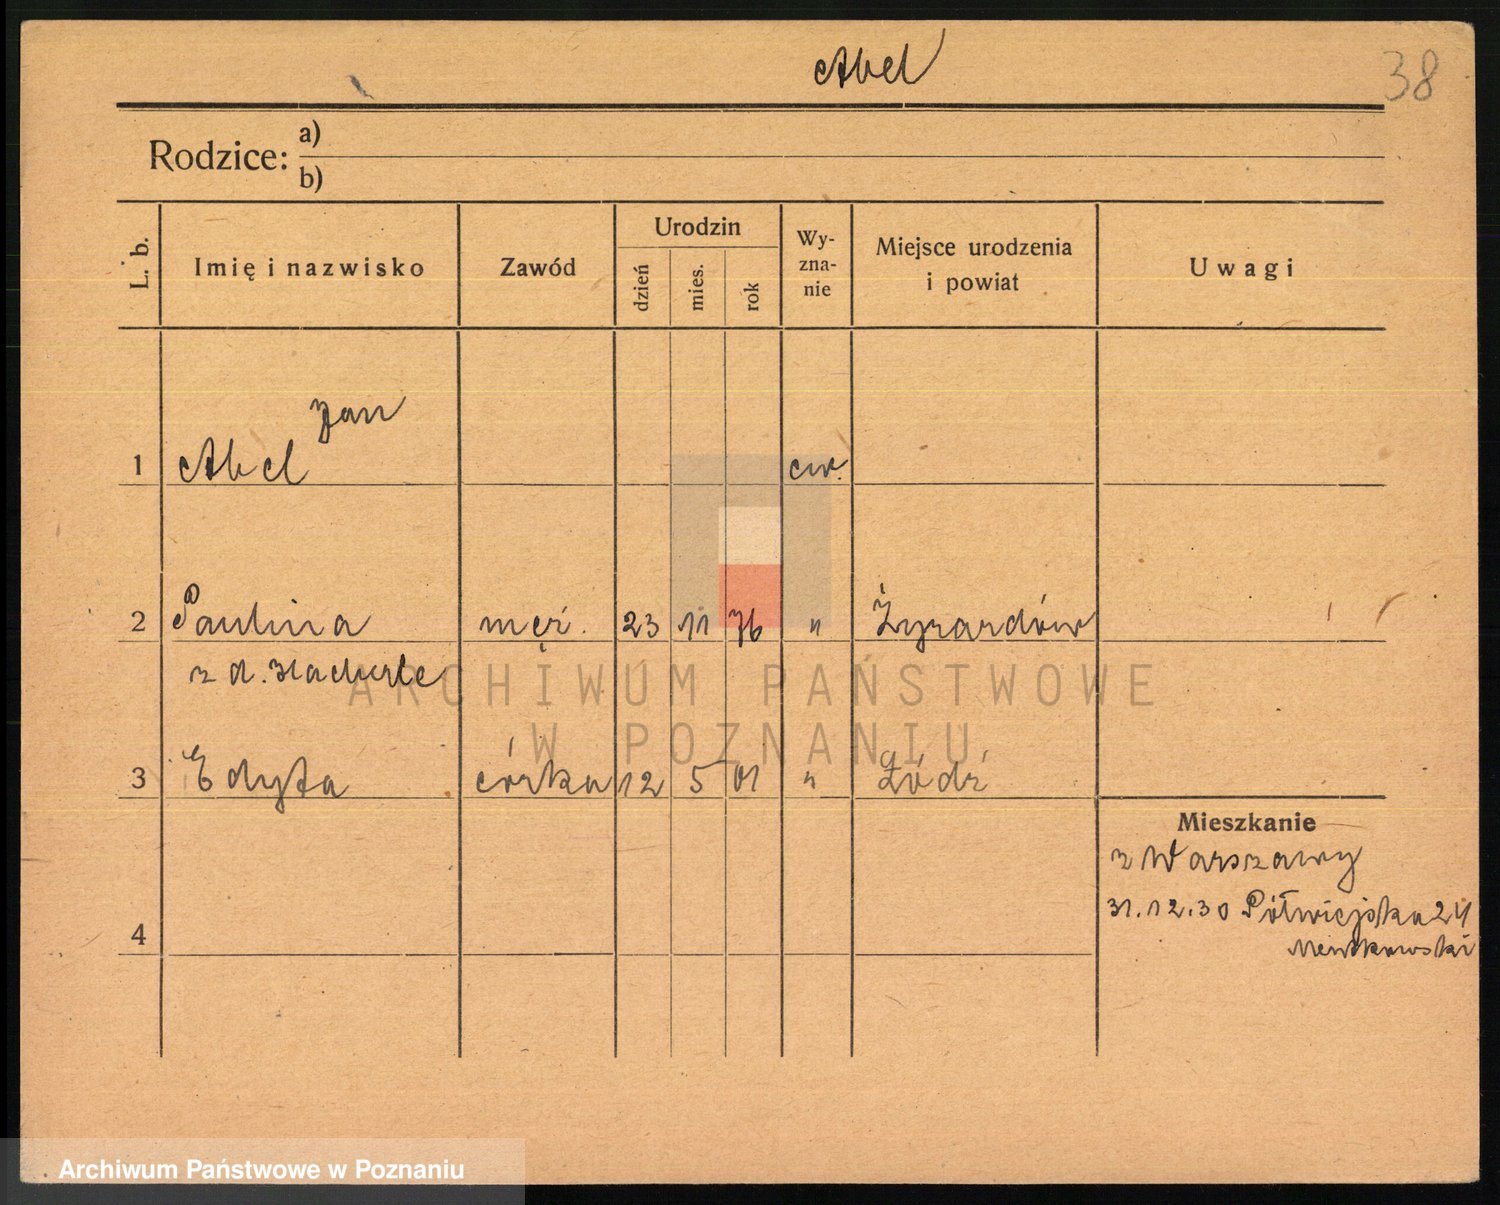 Abel
38
Rodzice: a)
b)
L. b. Imię i nazwisko Zawód Urodzin dzień mies. rok Wy-zna-nie Miejsce urodzenia i powiat Uwagi
Jan
1 Abel ew.
2 Paulina męż. 23 11 76 " Żyrardów
z d.
3 Edyta córka 12 5 01 " Łódź
Mieszkanie
z Warszawy
4
31.12.30 Półwiejska 24
ARCHIWUM PAŃSTWOWE
W POZNANIU
Archiwum Państwowe w Poznaniu